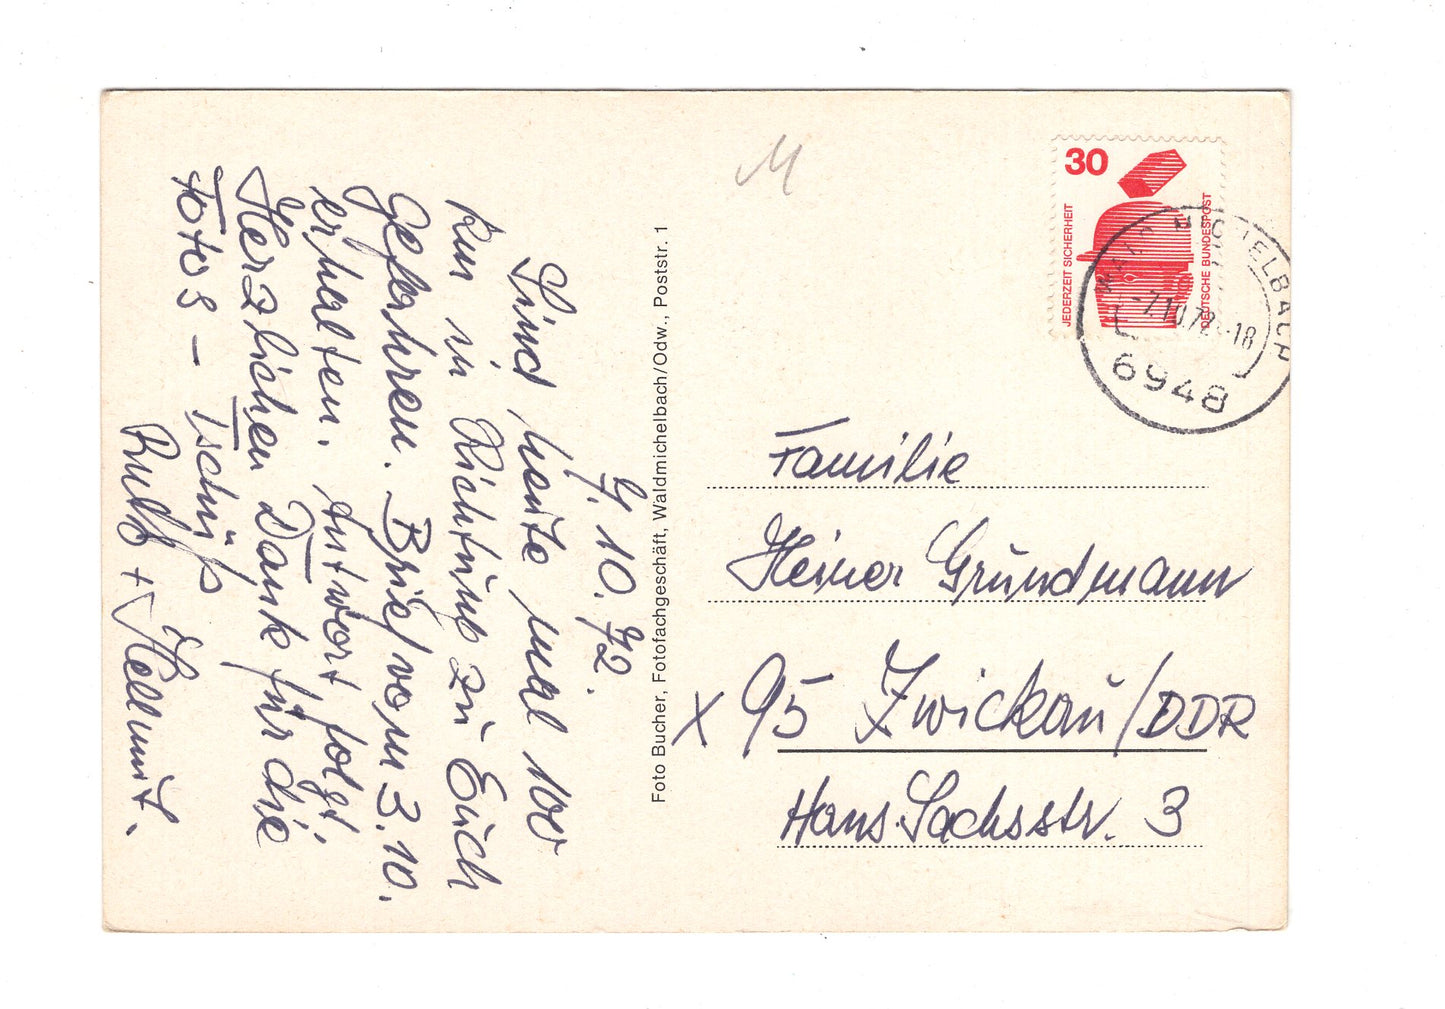 7. 10. 72.
Sind heute mal 100
km in Richtung zu Euch
gefahren. Brief vom 3. 10.
erhalten. Antwort folgt.
Herzlichen Dank für die
Fotos – Tschüß
Ruth + Hellmut.
Foto Bucher, Fotofachgeschäft, Waldmichelbach/Odw., Poststr. 1
M
30
JEDERZEIT SICHERHEIT
DEUTSCHE BUNDESPOST
WALD-MICHELBACH
-7.10.72-18
6948
Familie
Heiner Gründmann
x 95 Zwickau/DDR
Hans-Sachsstr. 3